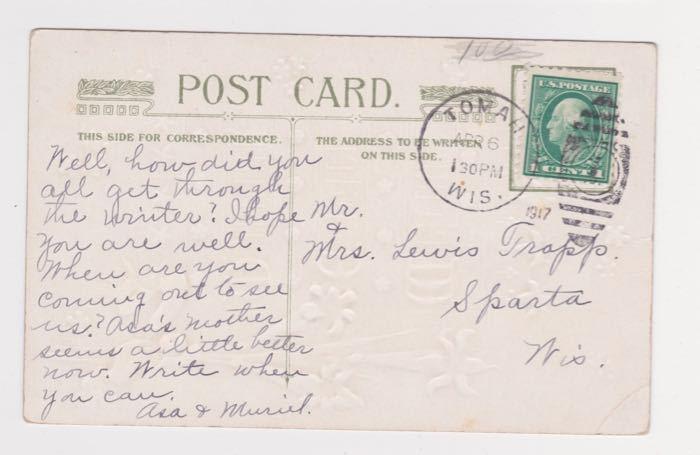 100
POST CARD.
THIS SIDE FOR CORRESPONDENCE.
THE ADDRESS TO BE WRITTEN
ON THIS SIDE.
U.S. POSTAGE
1 CENT 1
TOMAH
APR 6
1 30 PM
WIS.
1917
Well, how did you
all get through
the winter? I hope
you are well.
When are you
coming out to see
us? Asa's mother
seems a little better
now. Write when
you can.
Asa & Muriel.
Mr.
&
Mrs. Lewis Trapp.
Sparta
Wis.